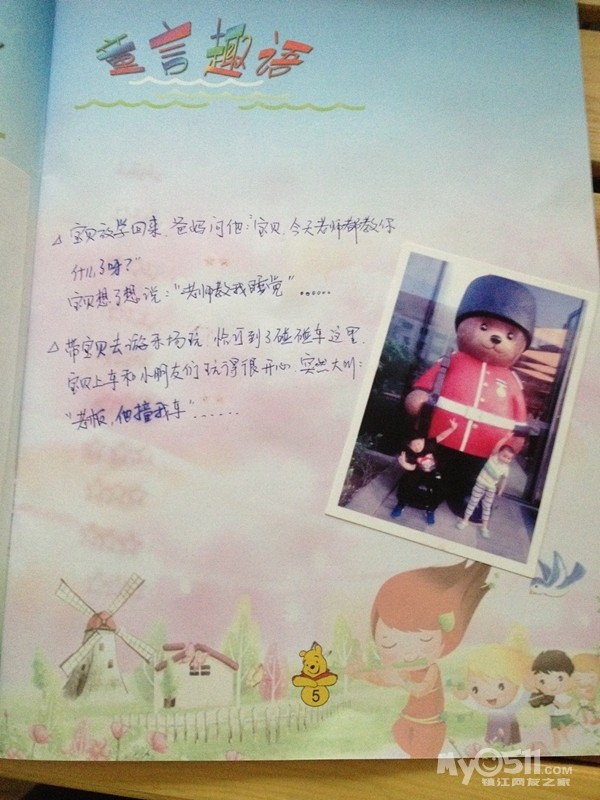 童言趣语
△ 宝贝放学回来，爸妈问他："宝贝，今天老师都教你
什么了呀？"
宝贝想了想说："老师教我睡觉"……
△ 带宝贝去游乐场玩，恰巧到了碰碰车这里，
宝贝上车和小朋友们玩得很开心，突然大叫：
"老板，他撞我车"……
5
My0511.com
镇江网友之家